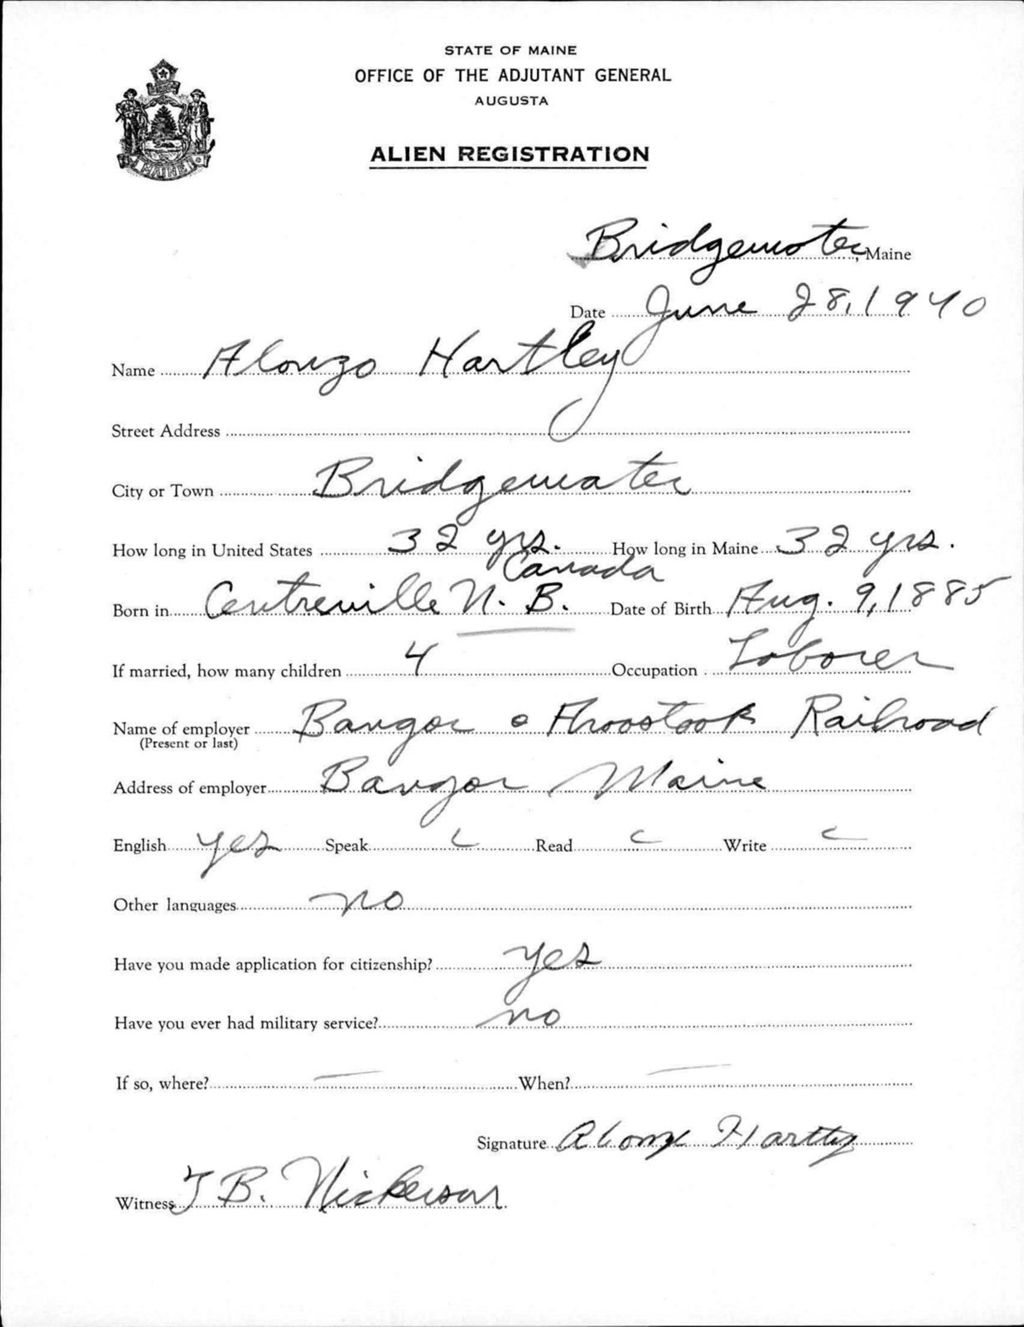 STATE OF MAINE
OFFICE OF THE ADJUTANT GENERAL
AUGUSTA
ALIEN REGISTRATION
MAINE
Bridgewater, Maine
Date June 28, 1940
Name Alonzo Hartley
Street Address
City or Town Bridgewater
How long in United States 32 yrs. How long in Maine 32 yrs.
Canada
Born in Centreville N. B. Date of Birth Aug. 9, 1885
If married, how many children 4 Occupation Laborer
Name of employer Bangor & Aroostook Railroad
(Present or last)
Address of employer Bangor Maine
English yes Speak Read Write
Other languages no
Have you made application for citizenship? yes
Have you ever had military service? no
If so, where? — When? —
Signature Alonzo Hartley
Witness J B. Nickerson